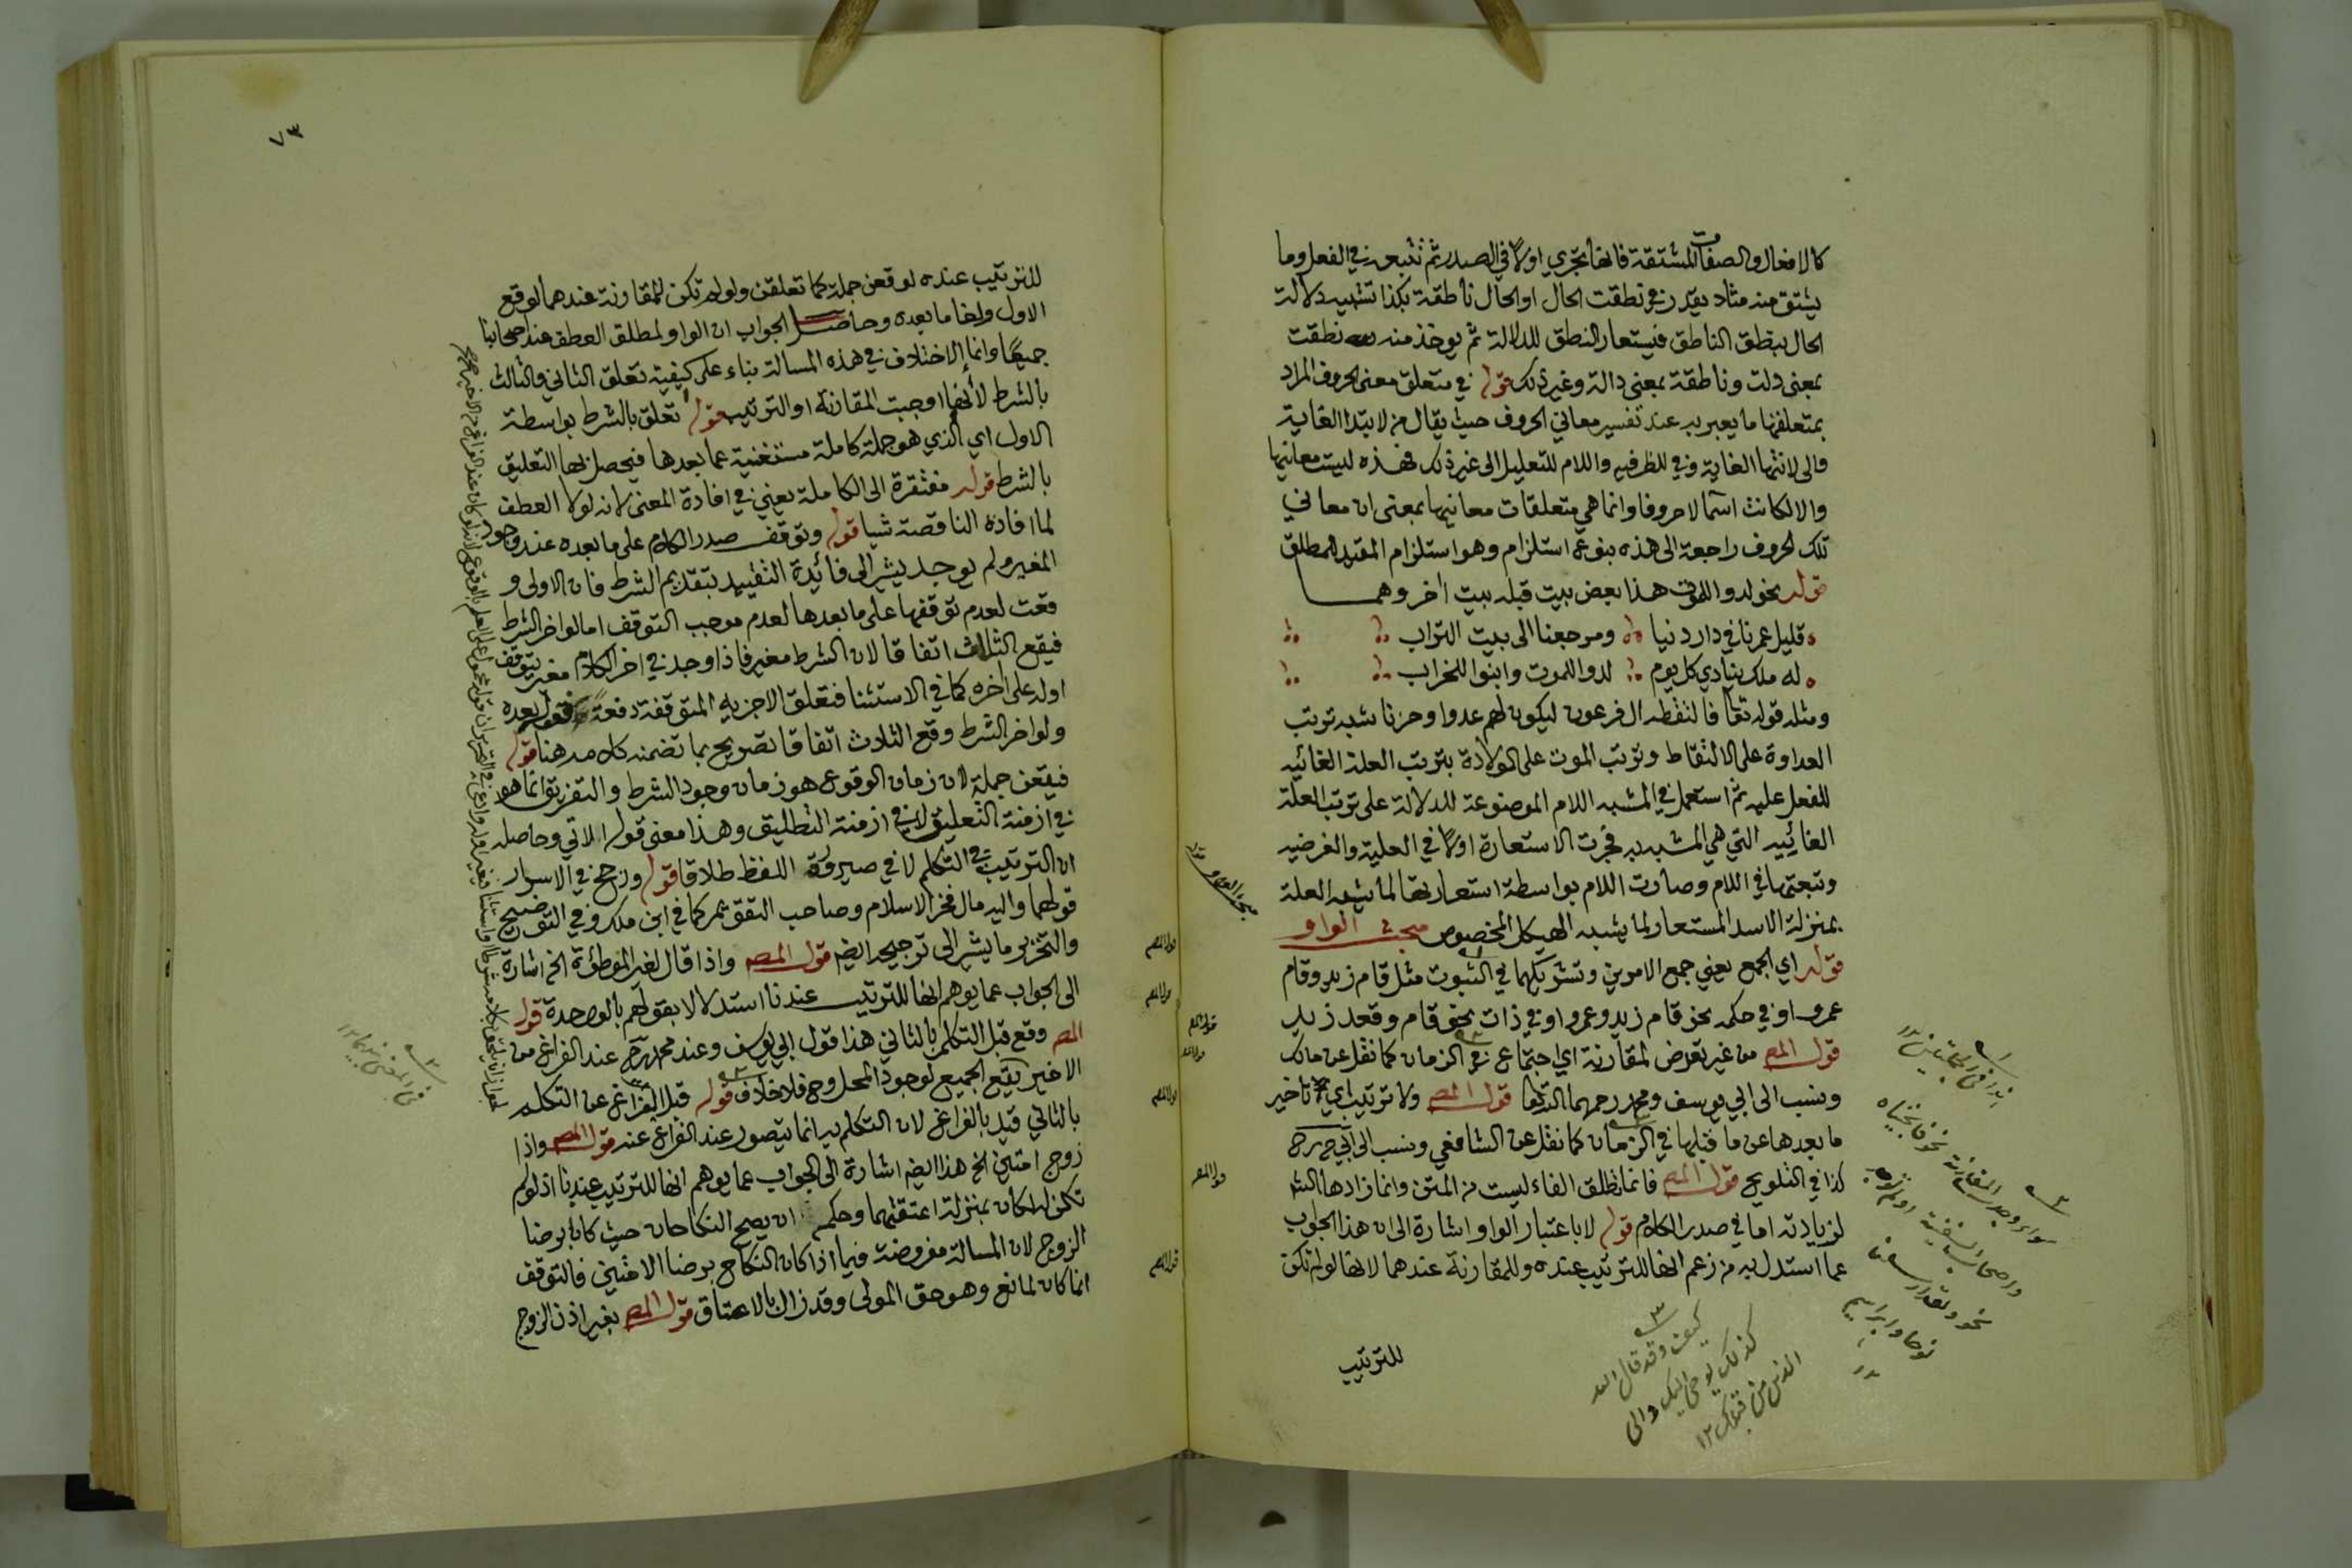 كالافعال والصفات المشتقة فانها تجري اولا في المصدر ثم تتبعه في الفعل وما
يشتق منه مثلا يقدر في نطقت الحال او الحال ناطقة بكذا تشبيه دلالة
الحال بنطق الناطق فيستعار النطق للدلالة ثم يوخذ منه نطقت
بمعنى دلت وناطقة بمعنى دالة وغير ذلك قوله في متعلق معنى الحروف المراد
بمتعلقها ما يعبر به عند تفسير معاني الحروف حيث يقال من لابتدا الغاية
والى لانتها الغاية وفي للظرفيه واللام للتعليل الى غير ذلك فهذه ليست معانيها
والا لكانت اسما لا حروفا وانما هي متعلقات معانيها بمعنى ان معاني
تلك الحروف راجعة الى هذه بنوع استلزام وهو استلزام المقيد للمطلق
قوله نحو لدوا للموت هذا بعض بيت قبله بيت اخر وهما
قليل عمرنا في دار دنيا ومرجعنا الى بيت التراب
له ملك ينادي كل يوم لدوا للموت وابنوا للخراب
ومثله قوله تعا فالتقطه ال فرعون ليكون لهم عدوا وحزنا شبه ترتب
العداوة على الالتقاط وترتب الموت على الولادة بترتب العلة الغائيه
للفعل عليه ثم استعمل في المشبه اللام الموضوعة للدلالة على ترتب العلة
الغائيه التي هي المشبه به فجرت الاستعارة اولا في العلية والغرضيه
وتبعتها في اللام وصارت اللام بواسطة استعارتها لما يشبه العلة
بمنزلة الاسد المستعار لما يشبه الهيكل المخصوص مبحث الواو
قوله اي الجمع يعني جمع الامرين وتشريكهما في الثبوت مثل قام زيد وقام
عمرو او في حكمه نحو قام زيد وعمرو او في ذات نحو قام وقعد زيد
قول المص من غير تعرض لمقارنة اي اجتماع في الزمان كما نقل عن مالك
ونسب الى ابي يوسف ومحمد رحمهما الله تعا قول المص ولا ترتيب اي تاخير
ما بعدها عن ما قبلها في الزمان كما نقل عن الشافعي ونسب الى ابي ح رح
كذا في التلويح قول المص فانما تطلق الفاء ليست من المتن وانما زادها الش
لزيادته اما في صدر الكلام قوله لا باعتبار الواو اشارة الى ان هذا الجواب
عما استدل به من زعم انها للترتيب عنده وللمقارنة عندهما لانها لو لم تكن
للترتيب
كيف وقد قال الله
كذلك يوحي اليك والى
الذين من قبلك ١٢
٧٣
للترتيب عنده لوقعن جملة كما تعلقن ولو لم تكن للمقارنة عندهما لوقع
الاول ولغا ما بعده وحاصل الجواب ان الواو لمطلق العطف عند اصحابنا
جميعا وانما الاختلاف في هذه المسالة بناء على كيفية تعلق الثاني والثالث
بالشرط لا لانها اوجبت المقارنة او الترتيب قوله تعلق بالشرط بواسطة
الاول اي الذي هو جملة كاملة مستغنية عما بعدها فيحصل بها التعليق
بالشرط قوله مفتقرة الى الكاملة يعني في افادة المعنى لانه لولا العطف
لما افادة الناقصة شيا قوله وتوقف صدر الكلام على ما بعده عند وجود
المغير ولم يوجد يشير الى فائدة التقييد بتقديم الشرط فان الاولى و
قعت لعدم توقفها على ما بعدها لعدم موجب التوقف اما لو اخر الشرط
فيقع الثلاث اتفاقا لان الشرط مغير فاذا وجد في اخر الكلام مغير يتوقف
اوله على اخره كما في الاستثنا فتعلق الاجزيه المتوقفة دفعة فقوله بعده
ولو اخر الشرط وقع الثلاث اتفاقا تصريح بما تضمنه كلامه هنا قوله
فيقعن جملة لان زمان الوقوع هو زمان وجود الشرط والتفريق انما هو
في ازمنة التعليق لا في ازمنة التطليق وهذا معنى قوله الاتي وحاصله
ان الترتيب في التكلم لا في صيرورة اللفظ طلاقا قوله ورجح في الاسرار
قولهما واليه مال فخر الاسلام وصاحب التقويم كما في ابن ملك وفي التوضيح
والتحرير ما يشير الى ترجيحه ايضا قول المص واذا قال لغير الموطؤة الخ اشارة
الى الجواب عما يوهم انها للترتيب عندنا استدلالا بقولهم بالواحدة قول
المص وقع قبل التكلم بالثاني هذا قول ابي يوسف وعند محمد رح عند الفراغ من
الاخير يقع الجميع لوجود المحل وح فلا خلاف قوله قبل الفراغ عن التكلم
بالثاني قيد بالفراغ لان التكلم به انما يتصور عند الفراغ عنه قول المص واذا
زوج امتين الخ هذا ايضا اشارة الى الجواب عما يوهم انها للترتيب عندنا اذ لو لم
تكن له لكان بمنزلة اعتقتهما وحكمه ان يصح النكاحان حيث كانا برضا
الزوج لان المسالة مفروضة فيما اذا كان النكاح برضا الاثنين فالتوقف
انما كان لمانع وهو حق المولى وقد زال بالاعتاق قول المص بغير اذن الزوج